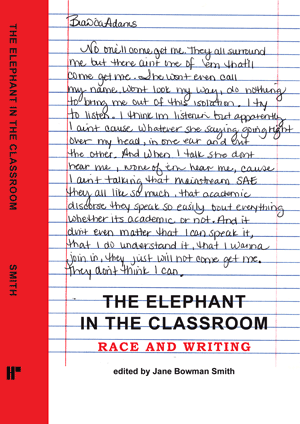 THE ELEPHANT IN THE CLASSROOM
SMITH
No one'll come get me. They all surround
me but there aint one of 'em that'll
come get me. She wont even call
my name, wont look my way, do nothing
to bring me out of this isolation. I try
to listen. I think Im listenin but apparently
I aint cause whatever she saying going right
over my head, in one ear and out
the other. And when I talk she dont
hear me, None of em hear me, cause
I aint talking that mainstream SAE
they all like so much, that academic
discorse they speak so easily bout everything
whether its academic or not. And it
dont even matter that I can speak it,
that I do understand it, that I wanna
join in, they just will not come get me.
They don't think I can.
THE ELEPHANT
IN THE CLASSROOM
RACE AND WRITING
edited by Jane Bowman Smith